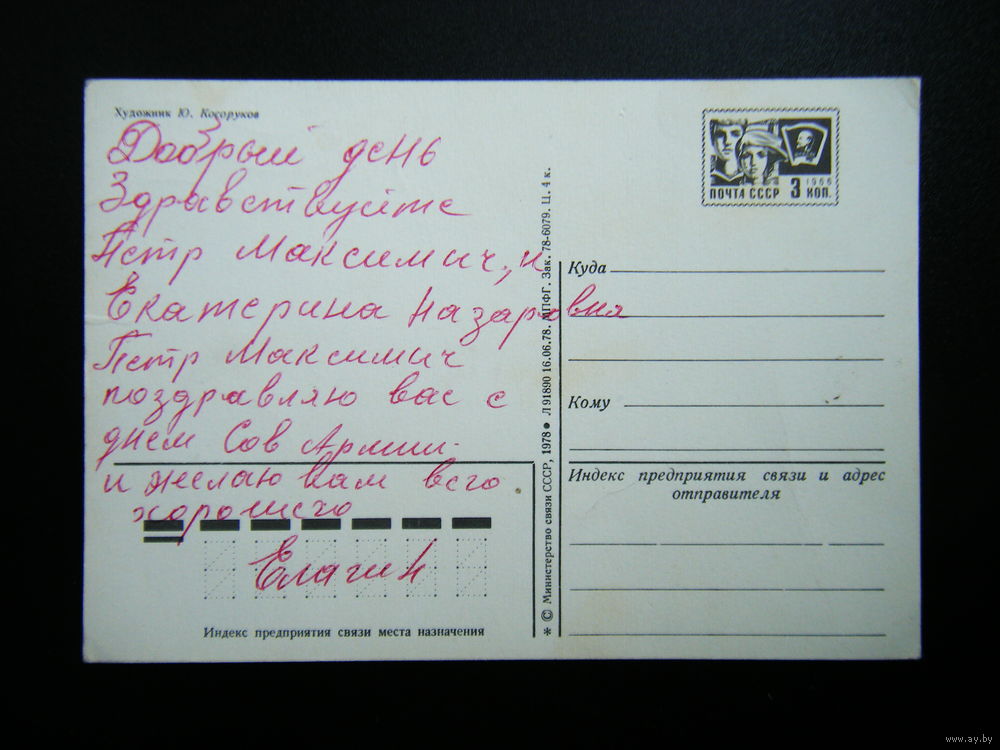 Художник Ю. Косоруков
Добрый день
Здравствуйте
Петр Максимич, и
Екатерина Назаровна
Петр Максимич
поздравляю вас с
днем Сов Армии.
и желаю вам всго
хорошего
Елагин
Индекс предприятия связи места назначения
* © Министерство связи СССР, 1978 ● Л 91890 16.06.78. МПФГ. Зак. 78-6079. Ц. 4 к.
ПОЧТА СССР 3 КОП.
1966
Куда
Кому
Индекс предприятия связи и адрес
отправителя
www.ay.by